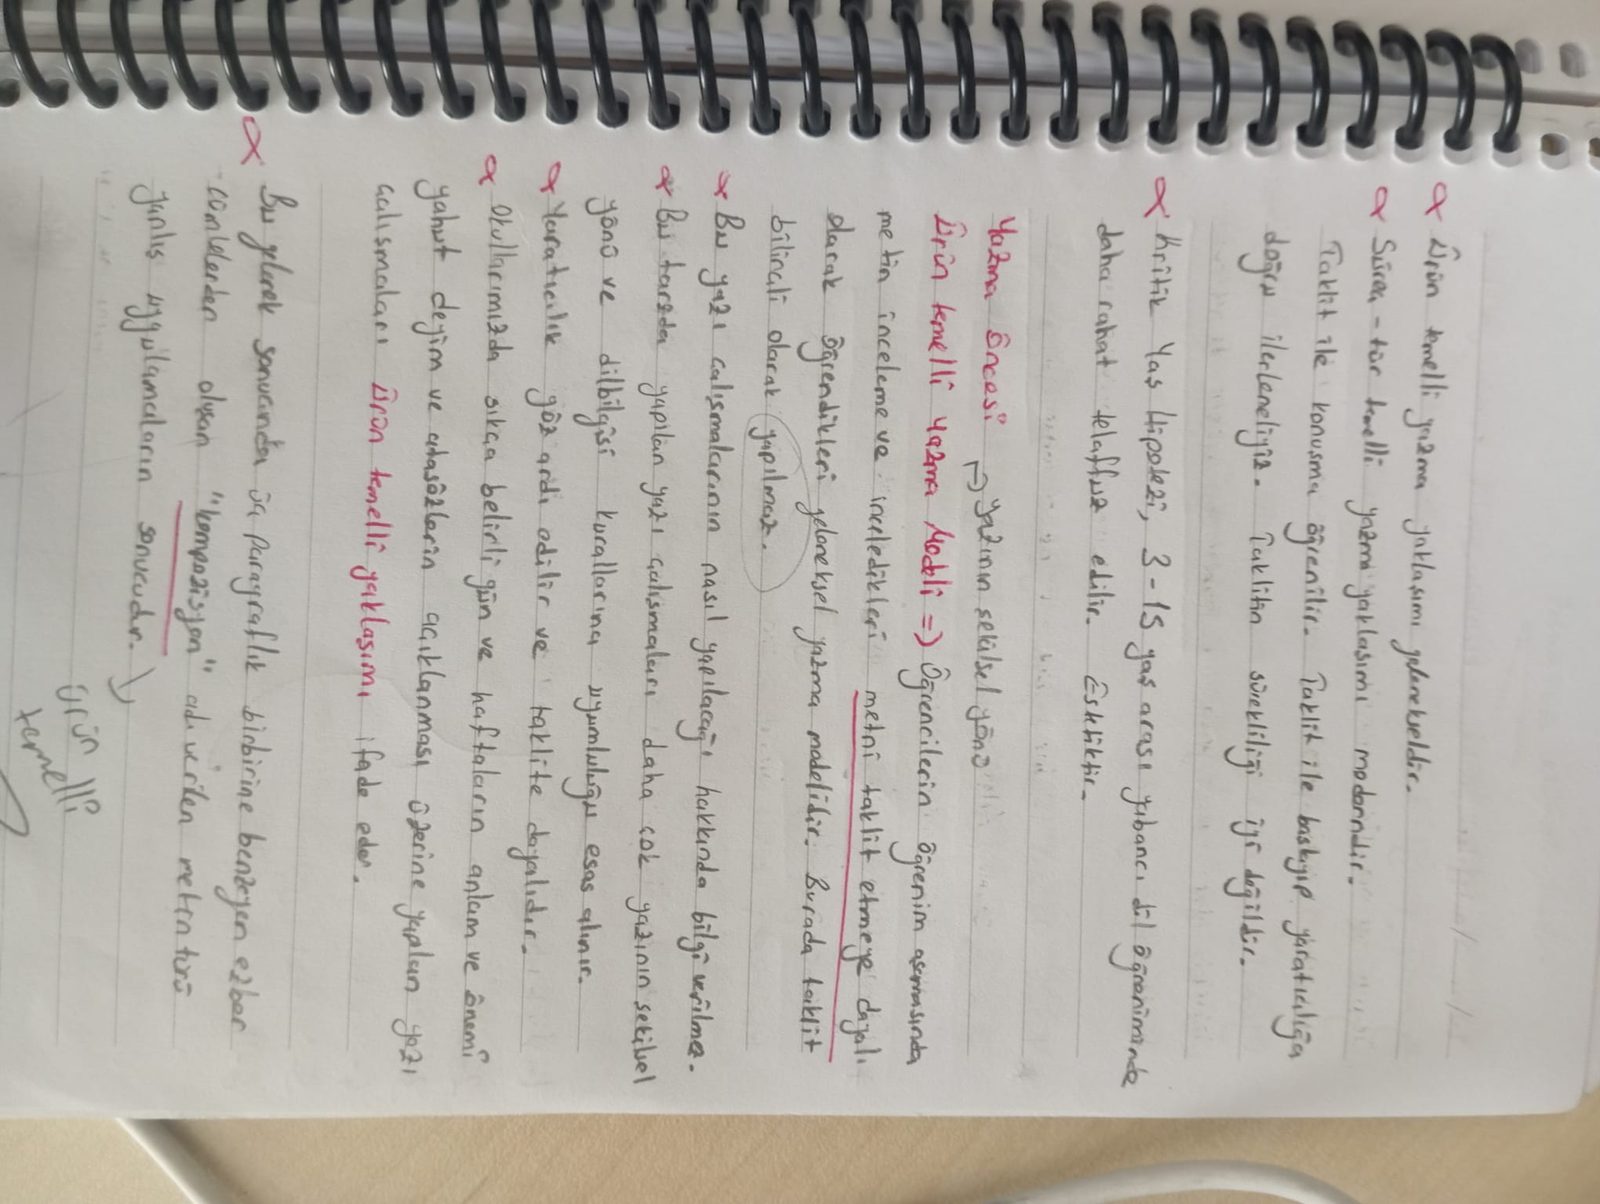 α Ürün temelli yazma yaklaşımı gelenekseldir.
α Süreç-tür temelli yazma yaklaşımı moderndir.
Taklit ile konuşma öğrenilir. Taklit ile başlayıp yaratıcılığa
doğru ilerlemeliyiz. Taklitin sürekliliği iyi değildir.
α Kritik Yaş Hipotezi, 3-15 yaş arası yabancı dil öğreniminde
daha rahat telaffuz edilir. Esktiktir.
Yazma Öncesi → Yazının şekilsel yönü
Ürün temelli Yazma Modeli => Öğrencilerin öğrenim aşamasında
metin inceleme ve inceledikleri metni taklit etmeye dayalı
olarak öğrendikleri geleneksel yazma modelidir. Burada taklit
bilinçli olarak yapılmaz.
α Bu yazı çalışmalarının nasıl yapılacağı hakkında bilgi verilmez.
α Bu tarzda yapılan yazı çalışmaları daha çok yazının şekilsel
yönü ve dilbilgisi kurallarına uyumluluğu esas alınır.
α Yaratıcılık göz ardı edilir ve taklite dayalıdır.
α Okullarımızda sıkça belirli gün ve haftaların anlam ve önemi
yahut deyim ve atasözlerin açıklanması üzerine yapılan yazı
çalışmaları Ürün temelli yaklaşımı ifade eder.
α Bu gelenek sonucunda üç paragraflık birbirine benzeyen ezber
cümlelerden oluşan "kompozisyon" adı verilen metin türü
yanlış uygulamaların sonucudur.
ürün
temelli